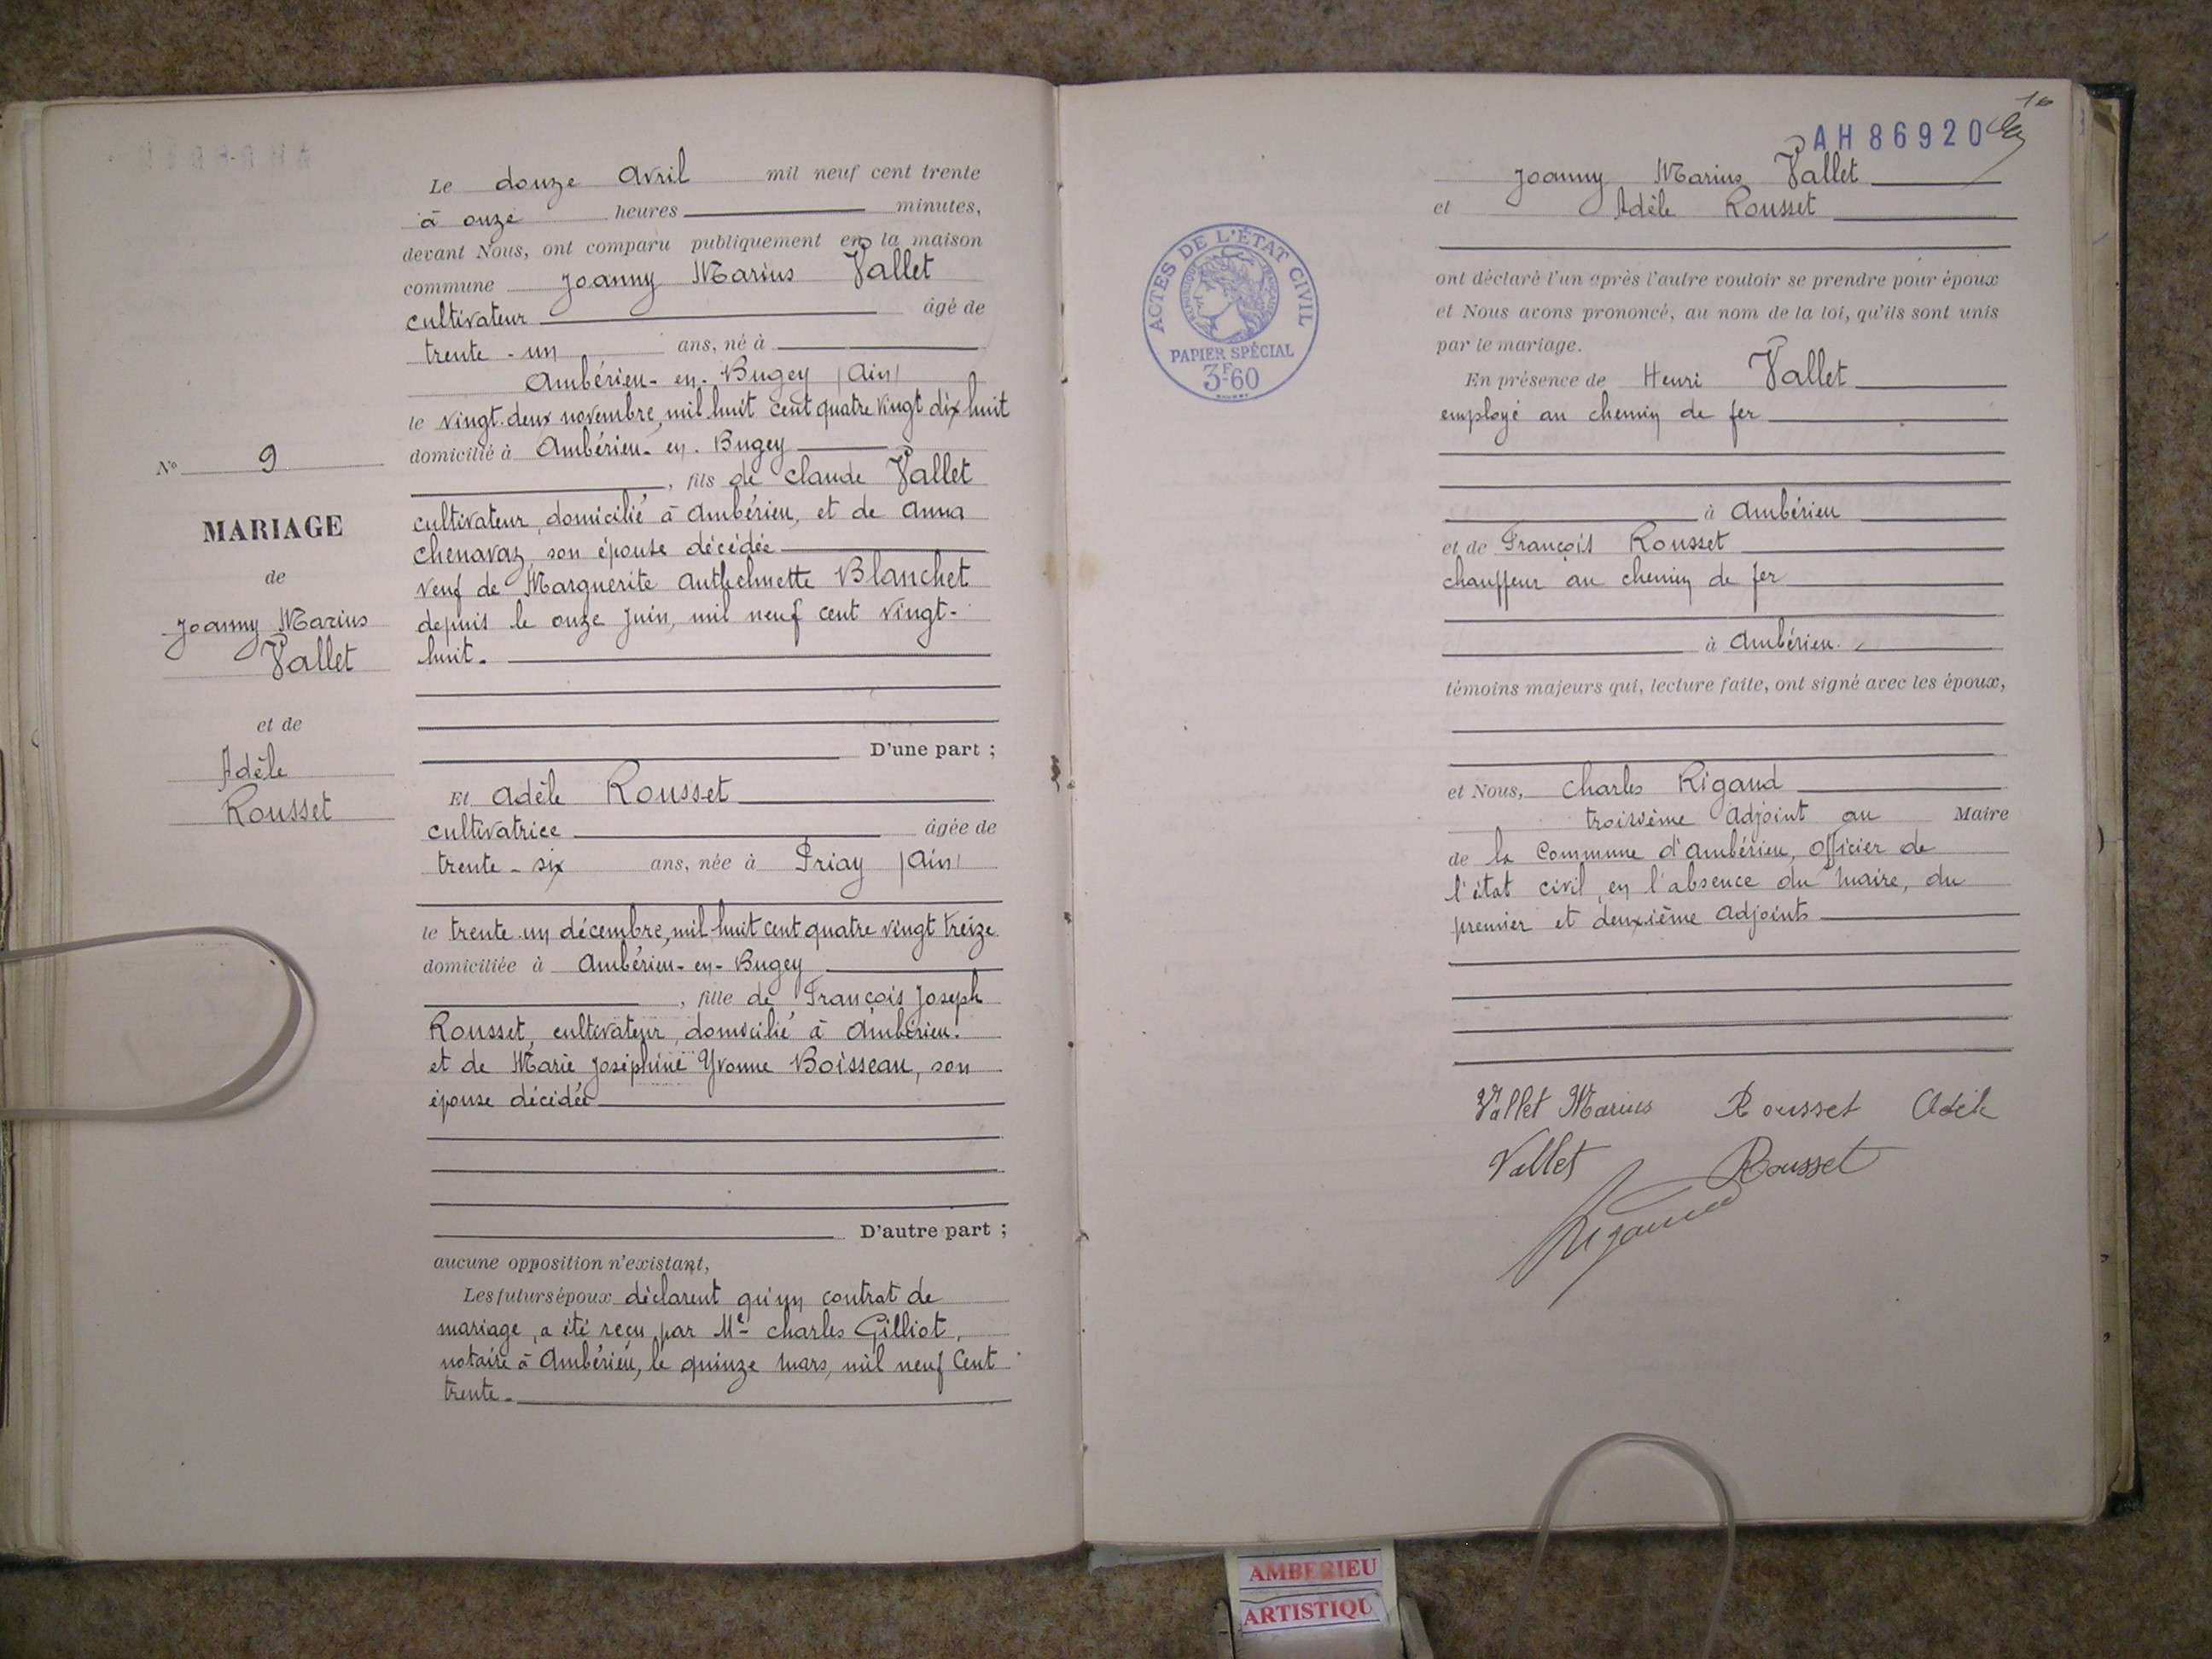 N° 9
MARIAGE
de
Joanny Marius
Vallet
et de
Adèle
Rousset
Le douze Avril mil neuf cent trente
à onze heures minutes,
devant Nous, ont comparu publiquement en la maison
commune Joanny Marius Vallet
cultivateur âgé de
trente-un ans, né à
Ambérieu-en-Bugey (Ain)
le vingt-deux novembre, mil huit cent quatre vingt dix huit
domicilié à Ambérieu-en-Bugey
, fils de Claude Vallet
cultivateur, domicilié à Ambérieu, et de Anna
Chenavaz, son épouse décédée
Veuf de Marguerite Anthelmette Blanchet
depuis le onze Juin, mil neuf cent vingt-
huit.
D'une part ;
Et Adèle Rousset
cultivatrice âgée de
trente-six ans, née à Priay (Ain)
le trente-un décembre, mil huit cent quatre vingt treize
domiciliée à Ambérieu-en-Bugey
, fille de François Joseph
Rousset, cultivateur, domicilié à Ambérieu.
et de Marie Joséphine Yvonne Boisseau, son
épouse décédée
D'autre part ;
aucune opposition n'existant,
Les futurs époux déclarent qu'un contrat de
mariage, a été reçu par Me Charles Gilliot,
notaire à Ambérieu, le quinze Mars, mil neuf Cent
trente.
16
AH 86920
Joanny Marius Vallet
et Adèle Rousset
ont déclaré l'un après l'autre vouloir se prendre pour époux
et Nous avons prononcé, au nom de la loi, qu'ils sont unis
par le mariage.
En présence de Henri Vallet
employé au chemin de fer
à Ambérieu
et de François Rousset
chauffeur au chemin de fer
à Ambérieu.
témoins majeurs qui, lecture faite, ont signé avec les époux,
et Nous, Charles Rigaud
troisième Adjoint au Maire
de la Commune d'Ambérieu, Officier de
l'état civil en l'absence du Maire, du
premier et deuxième Adjoints
Vallet Marius Rousset Adèle
Vallet Rousset
Rigaud
ACTES DE L'ÉTAT CIVIL
RÉPUBLIQUE FRANÇAISE
PAPIER SPÉCIAL
3F60
AMBERIEU
ARTISTIQU